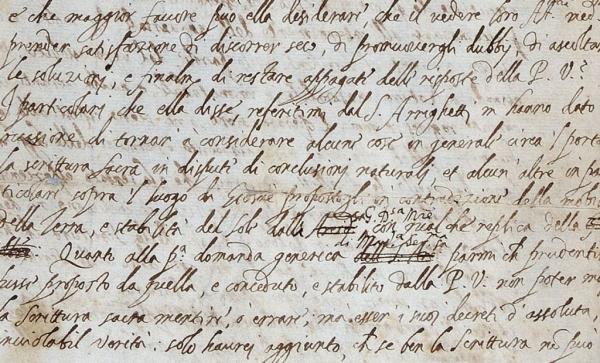 e che maggior favore può ella desiderare, che il vedere loro Al.
prender satisfazione di discorrer seco, di promuovergli dubbij, di ascoltar
le soluzioni, e finalm. di restare appagate delle risposte della P. V.?
I particolari che ella disse, referitimi dal S. Arrighetti, m hanno dato
occasione di tornar a considerare alcune cose in generale circa 'l porta
la scrittura sacra in dispute di conclusioni naturali, et alcun altre in pa
ticolari sopra 'l luogo di Giosuè propostogli in contradizione della mobi
della Terra, e stabilità del Sole dalla G. D.sa Mre con qualche replica della
di
Quanto alla p.a domanda generica parmi ch prudentis
fusse proposto da quella, e conceduto, e stabilito dalla P. V. non poter m
la Scrittura sacra mentire, o errare; ma esser i suoi decreti d'assoluta,
inviolabil verità: solo haurei aggiunto, ch se ben la Scrittura nō può